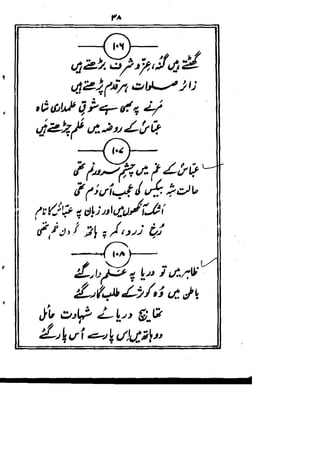 ۳۸
۱۰۶
گھٹتے ہیں گنہ، عز و شرف بڑھتے ہیں
زائر صلوات ہر قدم پڑھتے ہیں
مرنے پہ بھی ہے شوقِ علمداریِ شاہ
عباسؑ کے روضہ میں علم چڑھتے ہیں
۱۰۷
عباسؑ کے غم میں چشمِ سرور نم تھی
حالت شہِ بیکس کی عجب اُس دم تھی
اشک آنکھوں میں اور زبان پہ عباسؑ کا نام
رُخ زرد، کمر پہ ہاتھ، گردن خم تھی
۱۰۸
ظاہر میں تو دریا پہ علمدار گئے
باطن میں وہ کوثر کے طلبگار گئے
تھا بیچ دریائے شہادت حائل
دو ہاتھ میں اِس پار سے اُس پار گئے